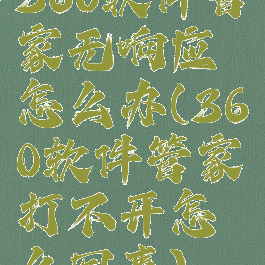 360软件管
家无响应
怎么办(36
0软件管家
打不开怎
么回事)